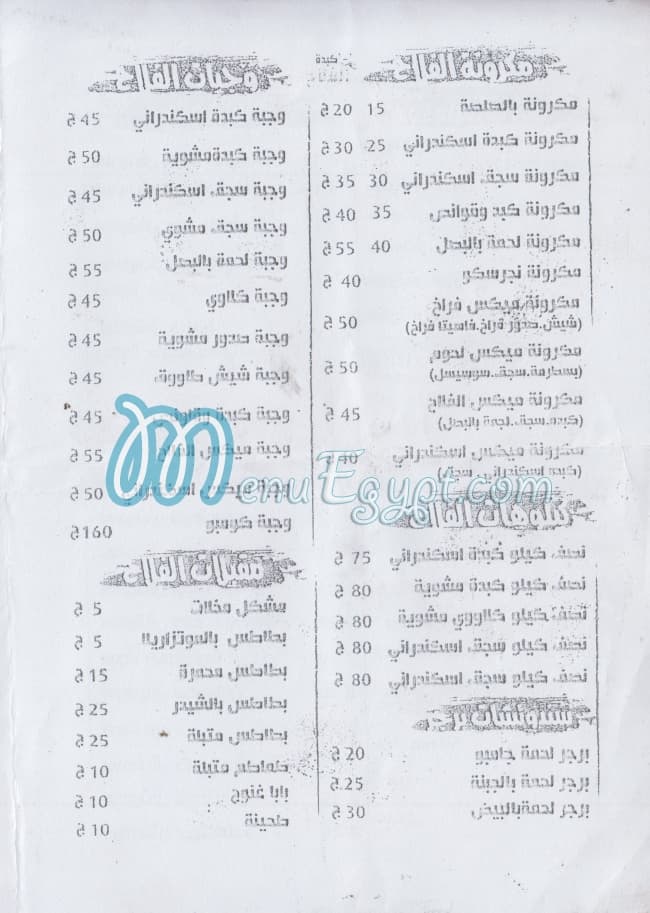 مكرونة الفلاح
كبدة
مكرونة بالصلصة 15 20 ج
مكرونة كبدة اسكندراني 25 30 ج
مكرونة سجق اسكندراني 30 35 ج
مكرونة كبد وقوانص 35 40 ج
مكرونة لحمة بالبصل 40 55 ج
مكرونة نجرسكو 40 ج
مكرونة ميكس فراخ 50 ج
(شيش.صدور فراخ.فاهيتا فراخ)
مكرونة ميكس لحوم 50 ج
(بسطرمة.سجق.سوسيسل)
مكرونة ميكس الفلاح 45 ج
(كبده.سجق.لحمة بالبصل)
مكرونة ميكس اسكندراني 40 ج
(كبده اسكندراني. سجق)
كيلوهات الفلاح
نصف كيلو كبدة اسكندراني 75 ج
نصف كيلو كبدة مشوية 80 ج
نصف كيلو كالووي مشوية 80 ج
نصف كيلو سجق اسكندراني 80 ج
نصف كيلو سجق اسكندراني 80 ج
برجر لحمة جامبو 20 ج
برجر لحمة بالجبنة 25 ج
برجر لحمةبالبيض 30 ج
وجبات الفلاح
وجبة كبدة اسكندراني 45 ج
وجبة كبدةمشوية 50 ج
وجبة سجق اسكندراني 45 ج
وجبة سجق مشوي 50 ج
وجبة لحمة بالبصل 55 ج
وجبة كلاوي 45 ج
وجبة صدور مشوية 45 ج
وجبة شيش طاووق 45 ج
وجبة كبدة وقوانص 45 ج
وجبة ميكس الفلاح 55 ج
وجبة ميكس اسكندراني 50 ج
وجبة كومبو 160 ج
مقبلات الفلاح
مشكل مخللات 5 ج
بطاطس بالموتزاريلا 5 ج
بطاطس محمرة 15 ج
بطاطس بالشيدر 25 ج
بطاطس متبلة 25 ج
طماطم متبلة 10 ج
بابا غنوج 10 ج
طحينة 10 ج
MenuEgypt.com